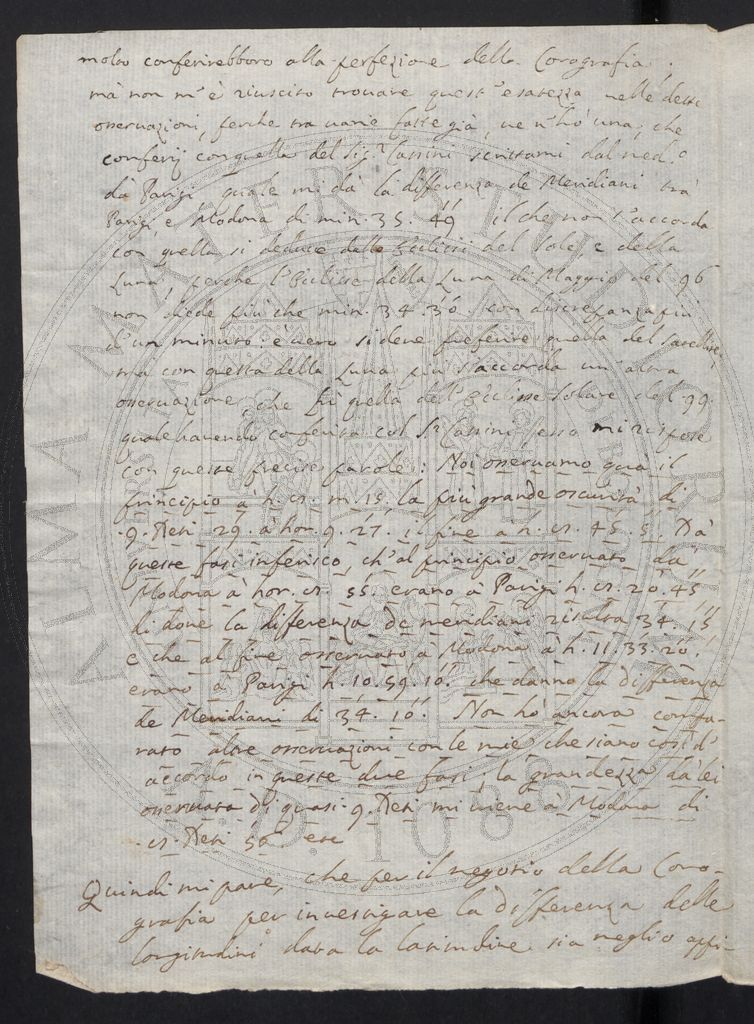 molto conferirebbero alla perfezione della Corografia.
mà non m'è riuscito trouare quest'esatezza nelle dette
osseruazioni, perche tra uarie fatte già, ue n'hò una, che
conferij con quella del Sig.r Cassini scrittami dal med.o
dà Parigi quale mi dà la differenza de Meridiani trà
Parigi e Modona di min. 35. 49'' il che non s'accorda
con quella si deduce dalle Eclissi del Sole, e della
Luna, perche l'Eclisse della Luna di Maggio del 96
non diede più che min. 34. 30''. con discrepanza più
d'un minuto: è uero si deue preferire quella del Satellite,
mà con questa della Luna più s'accorda un'altra
osseruazione, che fù quella dell'Eclisse Solare del 99.
quale hauendo conferita col S.r Cassini stesso mi rispose
con queste precise parole: Noi osseruamo qua il
principio à h. m. 15. la più grande oscurità di
9. Deti 29 à hor. 9. 27. il fine a h. 45. 5. Dà
queste fasi inferisco, ch'al principio osseruato da
Modona à hor. 55. erano à Parigi h. 20. 45''
di doue la differenza de meridiani risulta 34. 15''
e che al fine osseruato à Modona à h. 11. 33. 20''.
erano à Parigi h. 10. 59. 10''. che danno la differenza
de Meridiani di 34. 10''. Non ho ancora compa-
rato altre osseruazioni con le mie che siano così d'
accordo in queste due fasi; la grandezza dà lei
osseruata di quasi 9. Deti mi uiene à Modona di
Deti 50
Quindi mi pare, che per il negotio della Coro-
grafia per inuestigare la differenza delle
longitudini data la latitudine sia meglio appi-
ALMA MATER STUDIORUM
A.D. 1088